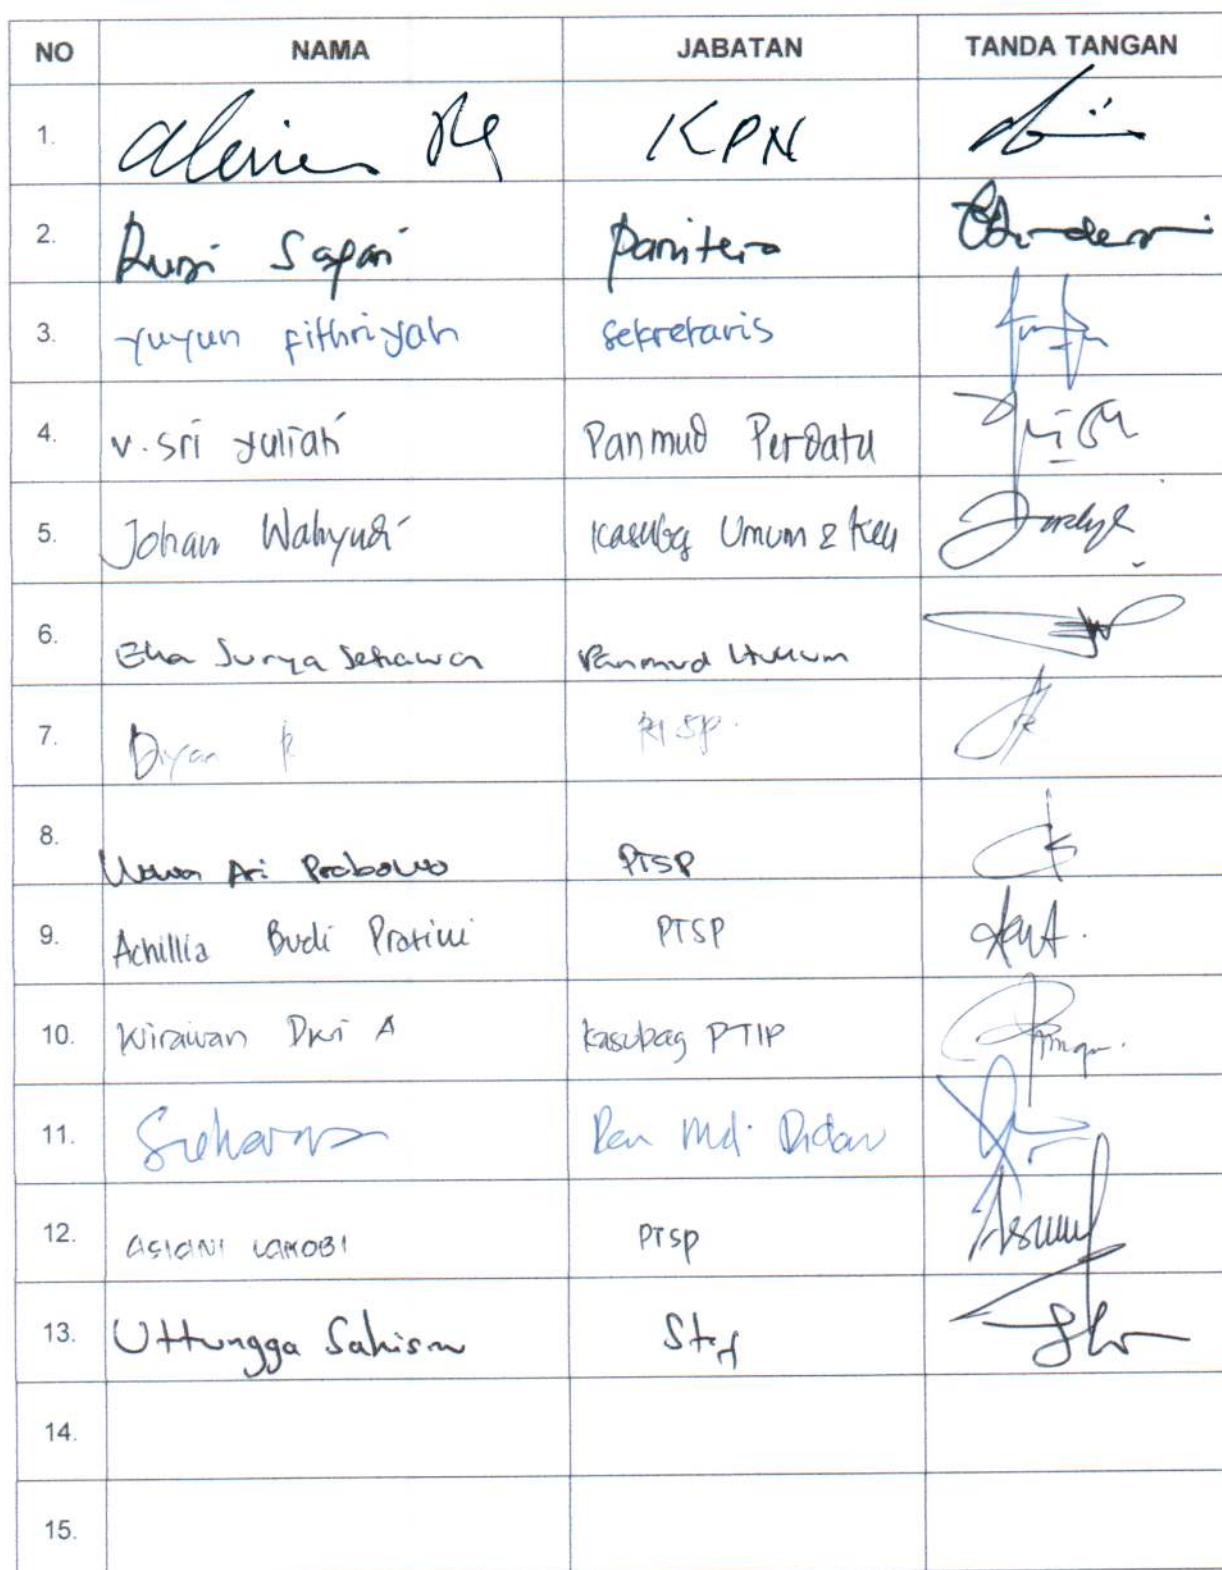 NO NAMA JABATAN TANDA TANGAN
1. KPN
2. Rusi Sapari Panitera
3. Yuyun Fithriyah Sekretaris
4. V. Sri Yuliati Panmud Perdata
5. Johan Wahyudi Kasubag Umum & Keu
6. Eka Surya Setiawan Panmud Hukum
7. Diyan
8. Ari Prabowo PTSP
9. Achillia Budi Pratiwi PTSP
10. Wirawan Dwi A Kasubag PTIP
11. Suharno Pan Md.
12. ASIANI PTSP
13. Uttungga Staf
14.
15.